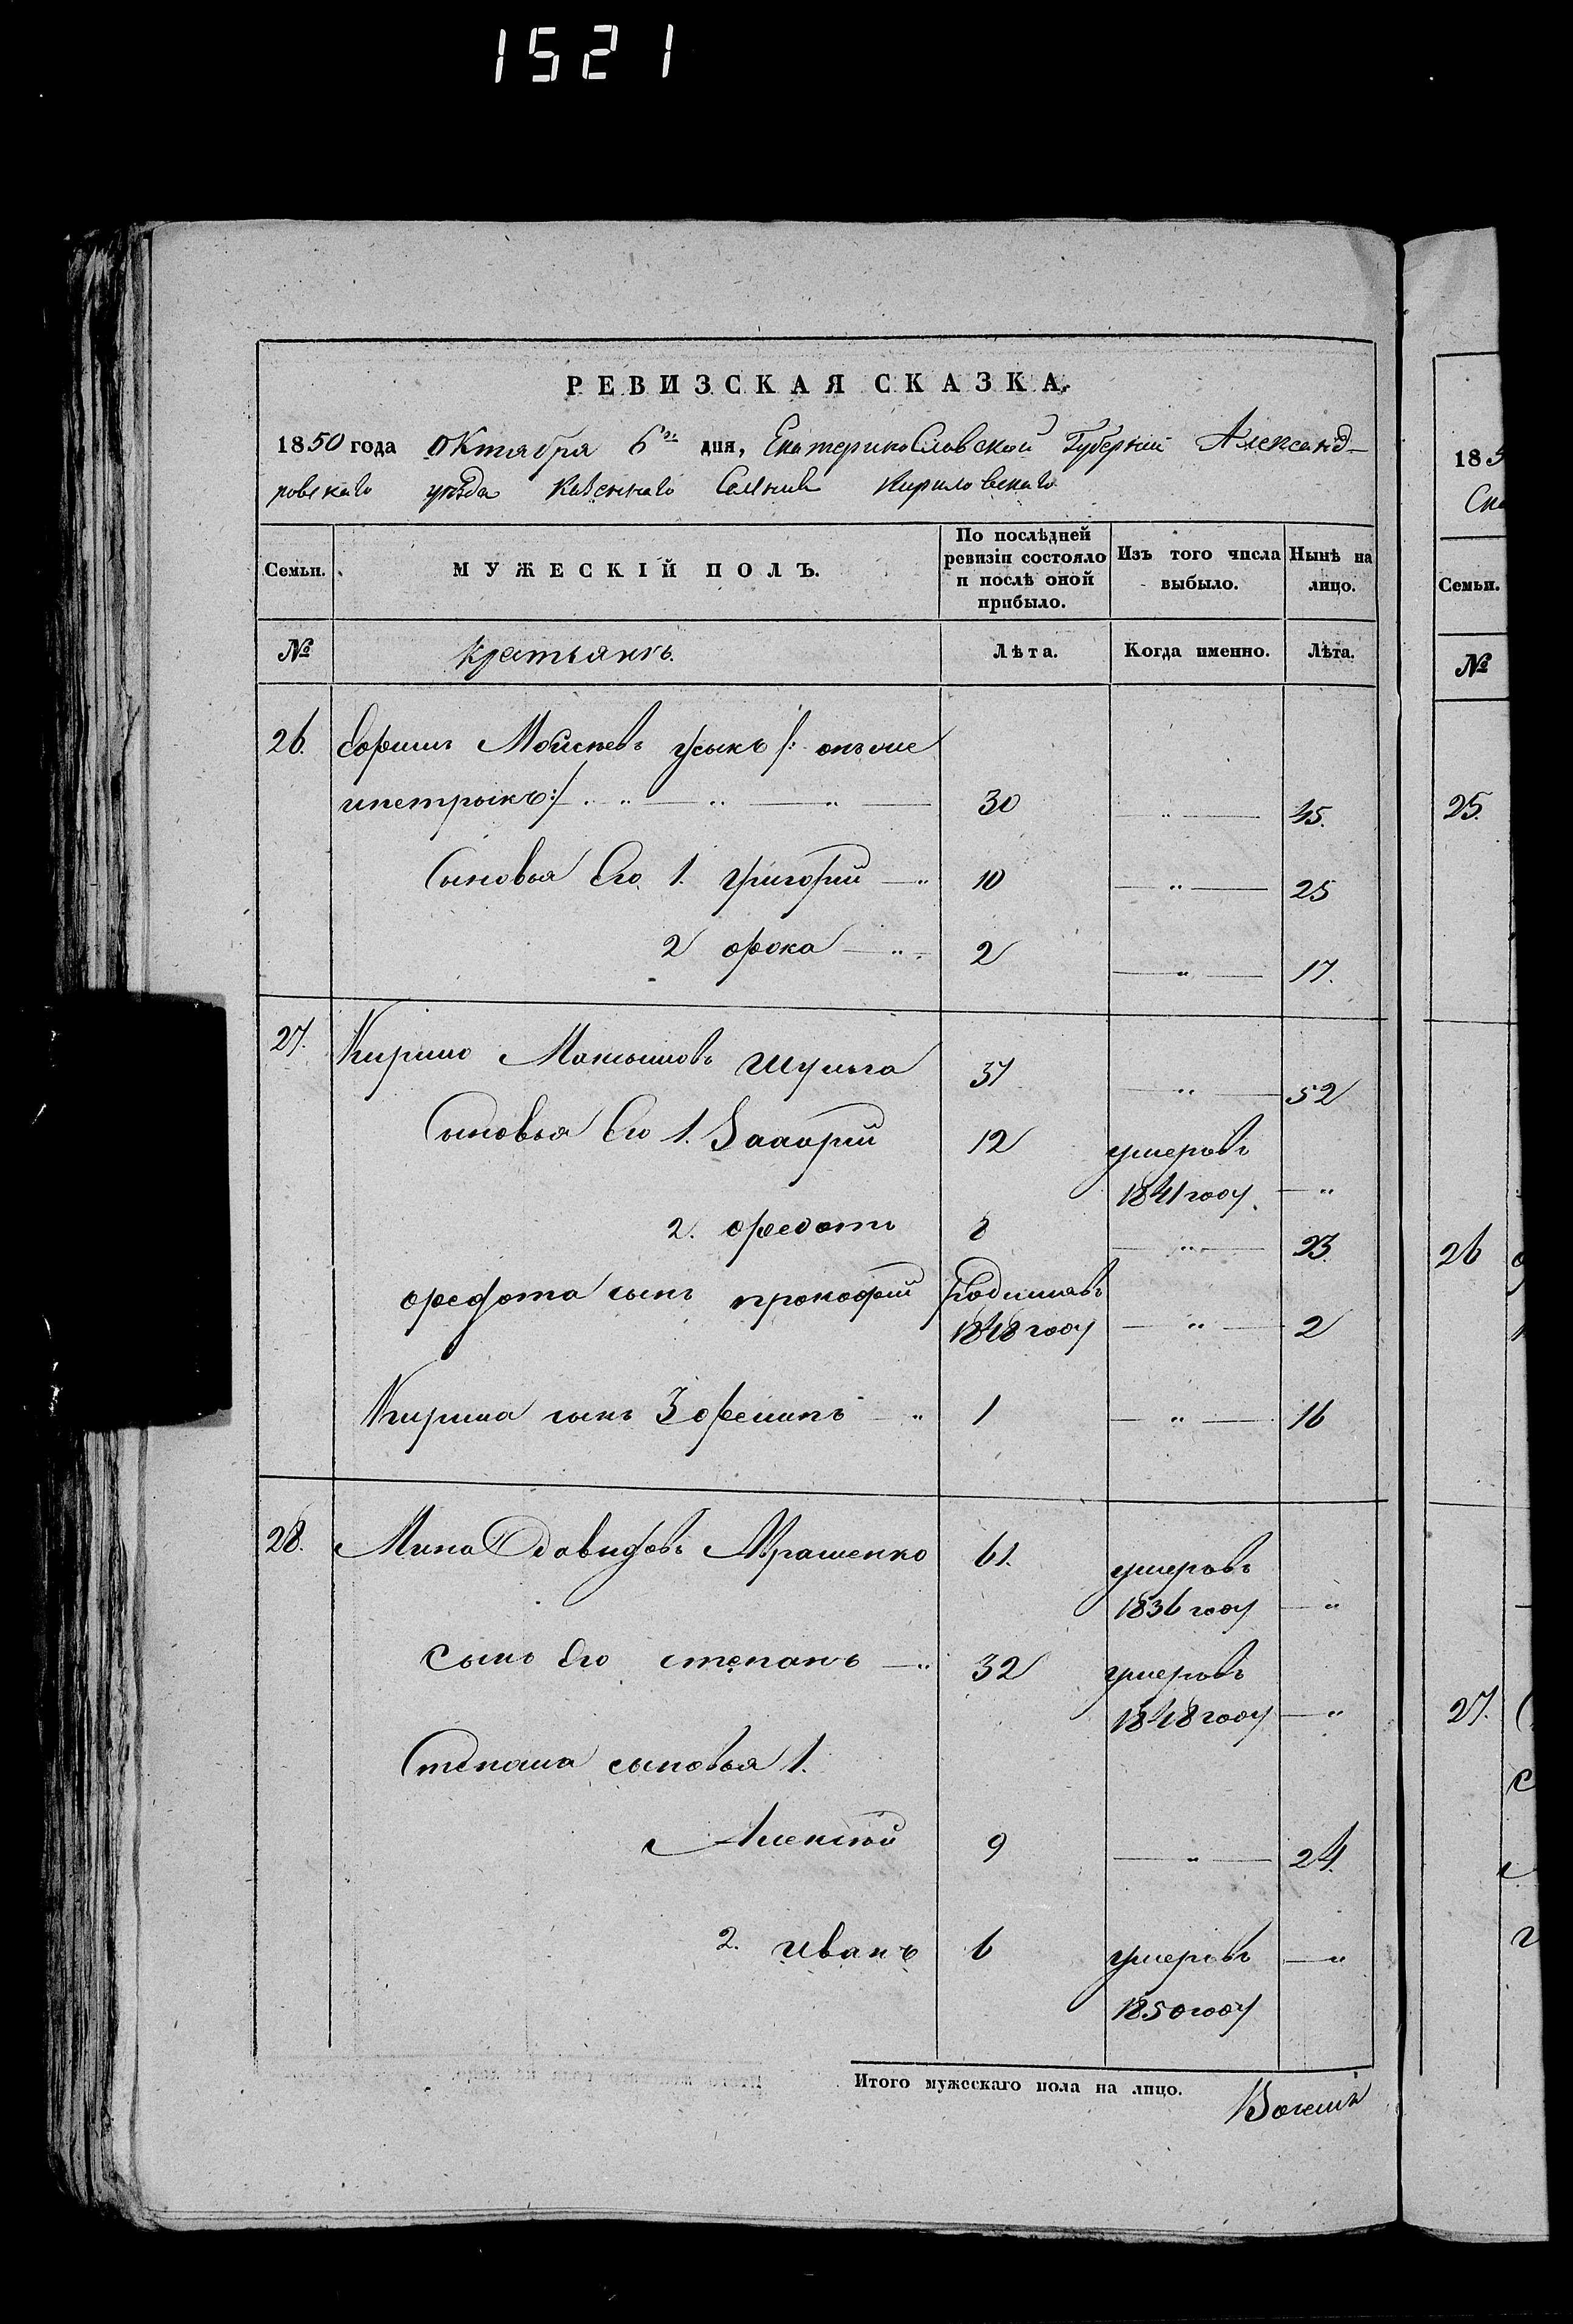 1521
РЕВИЗСКАЯ СКАЗКА.
1850 года октября 6го дня, Екатеринославской Губерніи Александ-
ровскаго уѣзда Казеннаго Селенія Кириловскаго
Семьи. МУЖЕСКІЙ ПОЛЪ. По послѣдней ревизіи состояло и послѣ оной прибыло. Изъ того числа выбыло. Нынѣ на лицо.
№ Крестьянъ. Лѣта. Когда именно. Лѣта.
26. Моисеевъ Усыкъ /: онъ же
:/ 30 — " — 45.
Сыновья Его 1. Григорій — " 10 — " — 25
2 Фока — " 2 — " — 17.
27. Кирило Максимовъ Шульга 37 — " — 52
Сыновья Его 1. Захарій 12 умеръ въ
1841 году — "
2. Федотъ 8 — " — 23
Федота сынъ Прокофій Родился въ
1848 году — " — 2
Кирила сынъ 3 — " 1 — " — 16
28. Мина Давидовъ 61. умеръ въ
1836 году — "
Сынъ Его Степанъ — " 32 умеръ въ
1848 году — "
Степана сыновья 1.
Алексѣй 9 — " — 24.
2. Иванъ 6 умеръ въ — "
1850 году
Итого мужескаго пола на лицо. Восемь
185
Семьи.
№
25.
26
27.